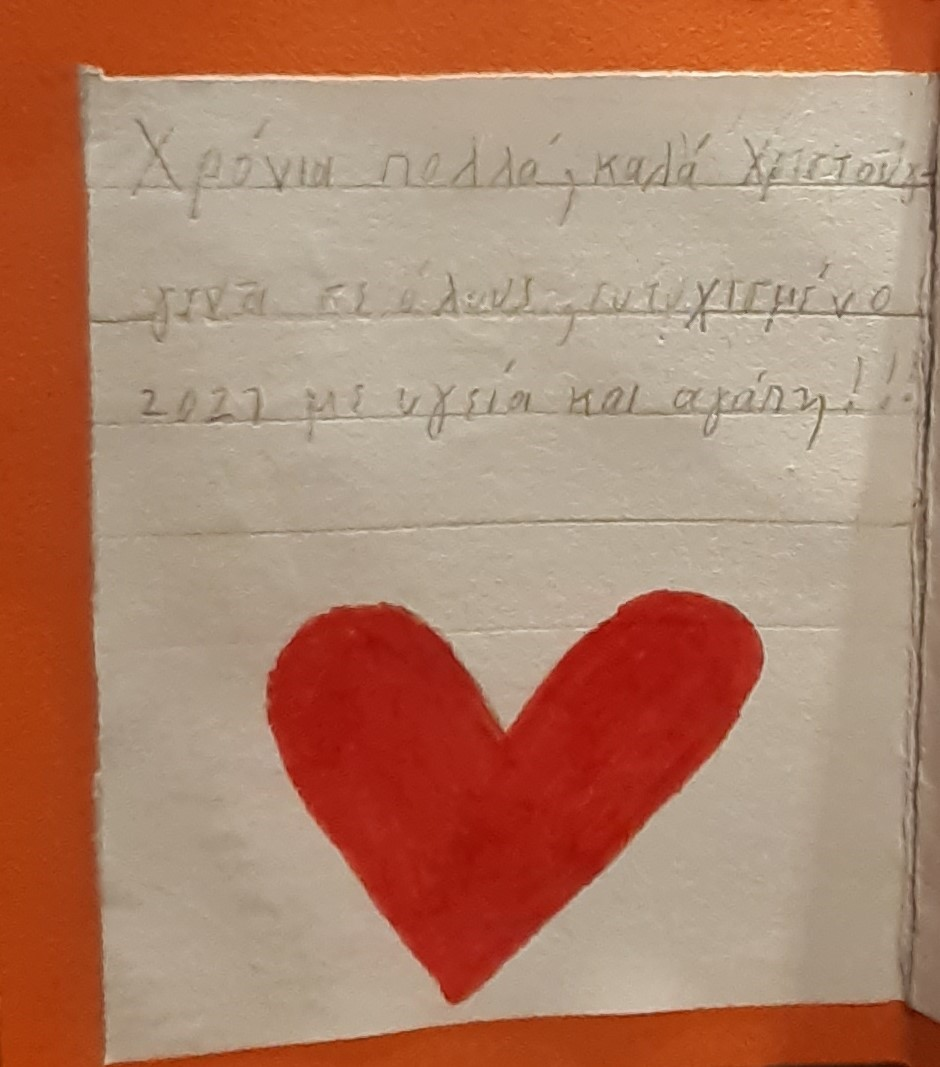 Χρόνια πολλά, καλά Χριστού-
γεννα σε όλους, ευτυχισμένο
2021 με υγεία και αγάπη!!!